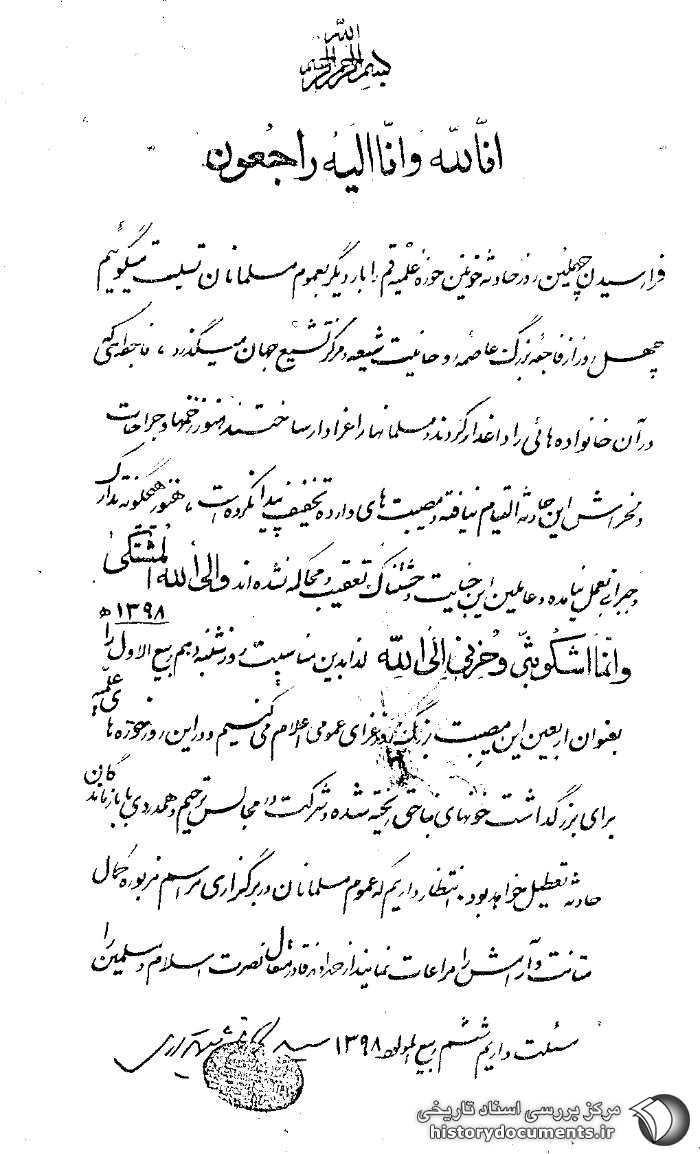 بسم الله الرحمن الرحیم
انا لله وانا الیه راجعون
فرا رسیدن چهلمین روز حادثه خونین حوزه علمیه قم را بار دیگر بعموم مسلمانان تسلیت میگوئیم
چهل روز از فاجعه بزرگ عاصمه روحانیت شیعه و مرکز تشیع جهان میگذرد، فاجعه‌ای که
در آن خانواده هائی را داغدار کردند و مسلمانها را عزادار ساختند هنوز زخمها و جراحات
دلخراش این حادثه التیام نیافته و مصیبت های وارده تخفیف پیدا نکرده است، هنوز هیچگونه تدارک
و جبرانی بعمل نیامده و عاملین این جنایت وحشتناک تعقیب و محاکمه نشده اند والی الله المشتکی
وانما اشکو بثی و حزنی الی الله لذا بدین مناسبت روز شنبه دهم ربیع الاول ۱۳۹۸ه را
بعنوان اربعین این مصیبت بزرگ روز عزای عمومی اعلام می کنیم و در این روز حوزه های علمیه
برای بزرگداشت خونهای بناحق ریخته شده و شرکت در مجالس ترحیم و همدردی با بازماندگان
حادثه تعطیل خواهد بود. انتظار داریم که عموم مسلمانان در برگزاری مراسم مزبوره کمال
متانت و آرامش را مراعات نمایند از خداوند قادر متعال نصرت اسلام و مسلمین را
مسئلت داریم ششم ربیع المولود ۱۳۹۸ سید کاظم شریعتمداری
مرکز بررسی اسناد تاریخی
historydocuments.ir